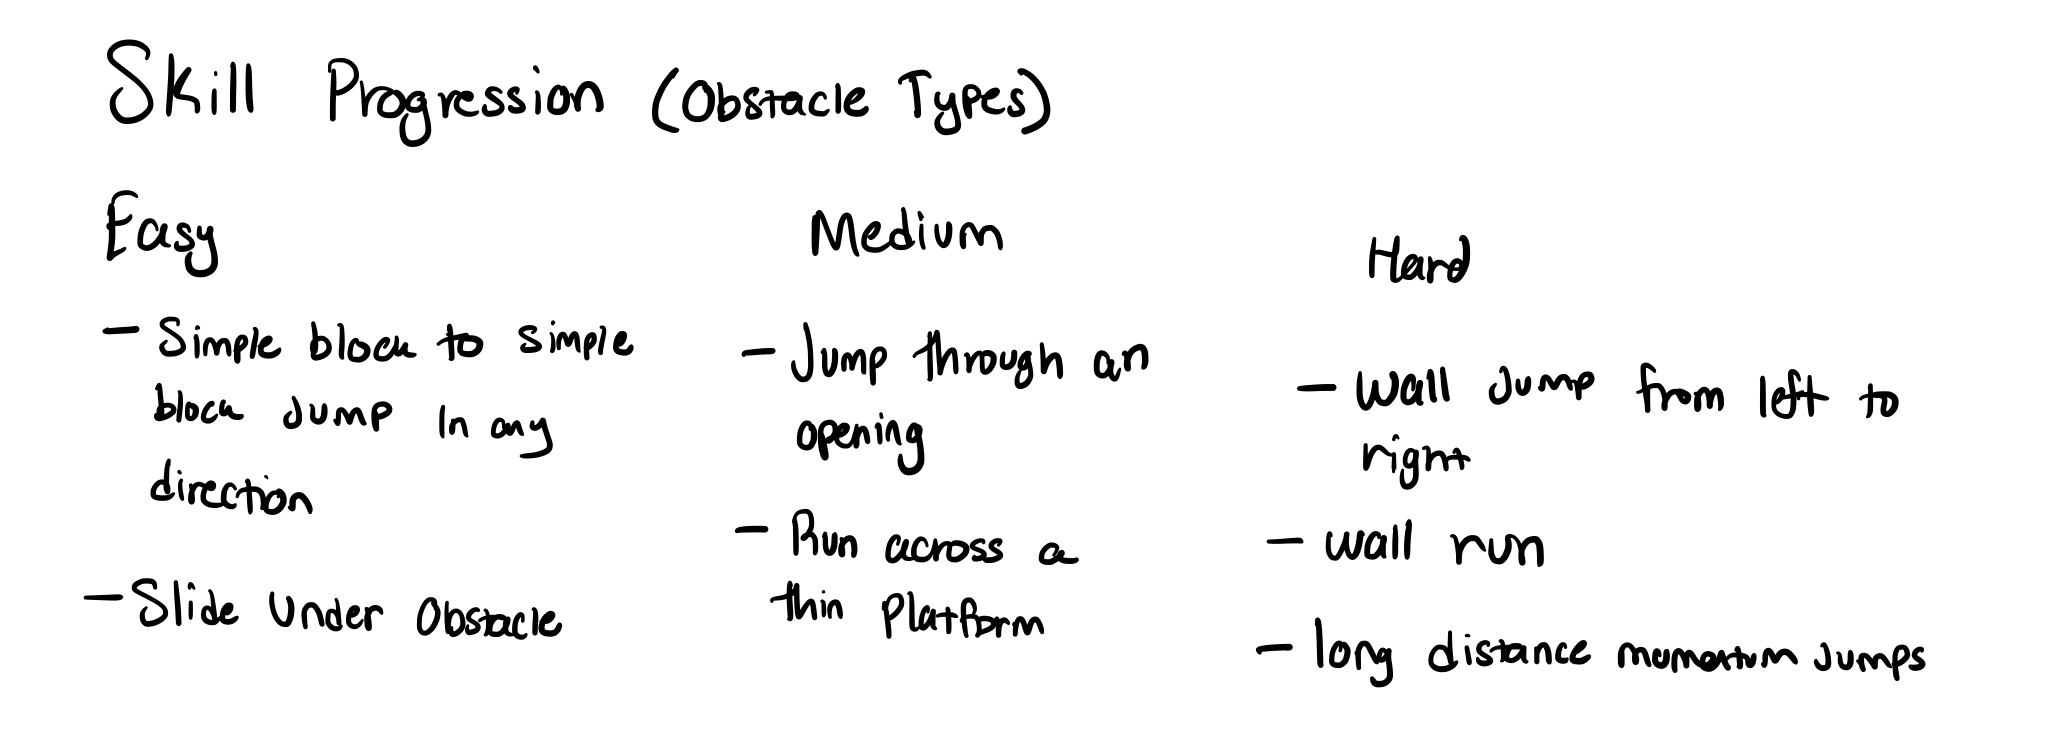 Skill Progression (Obstacle Types)
Easy
- Simple block to simple
block jump in any
direction
- Slide Under Obstacle
Medium
- Jump through an
opening
- Run across a
thin Platform
Hard
- Wall jump from left to
right
- wall run
- long distance momentum jumps